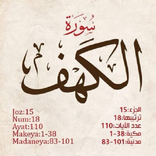 سورة
الكهف
الجزء:15
ترتيبها:18
عدد الآيات:110
مكية:1-38
مدنية:83-101
Joz:15
Num:18
Ayat:110
Makeya:1-38
Madaneya:83-101